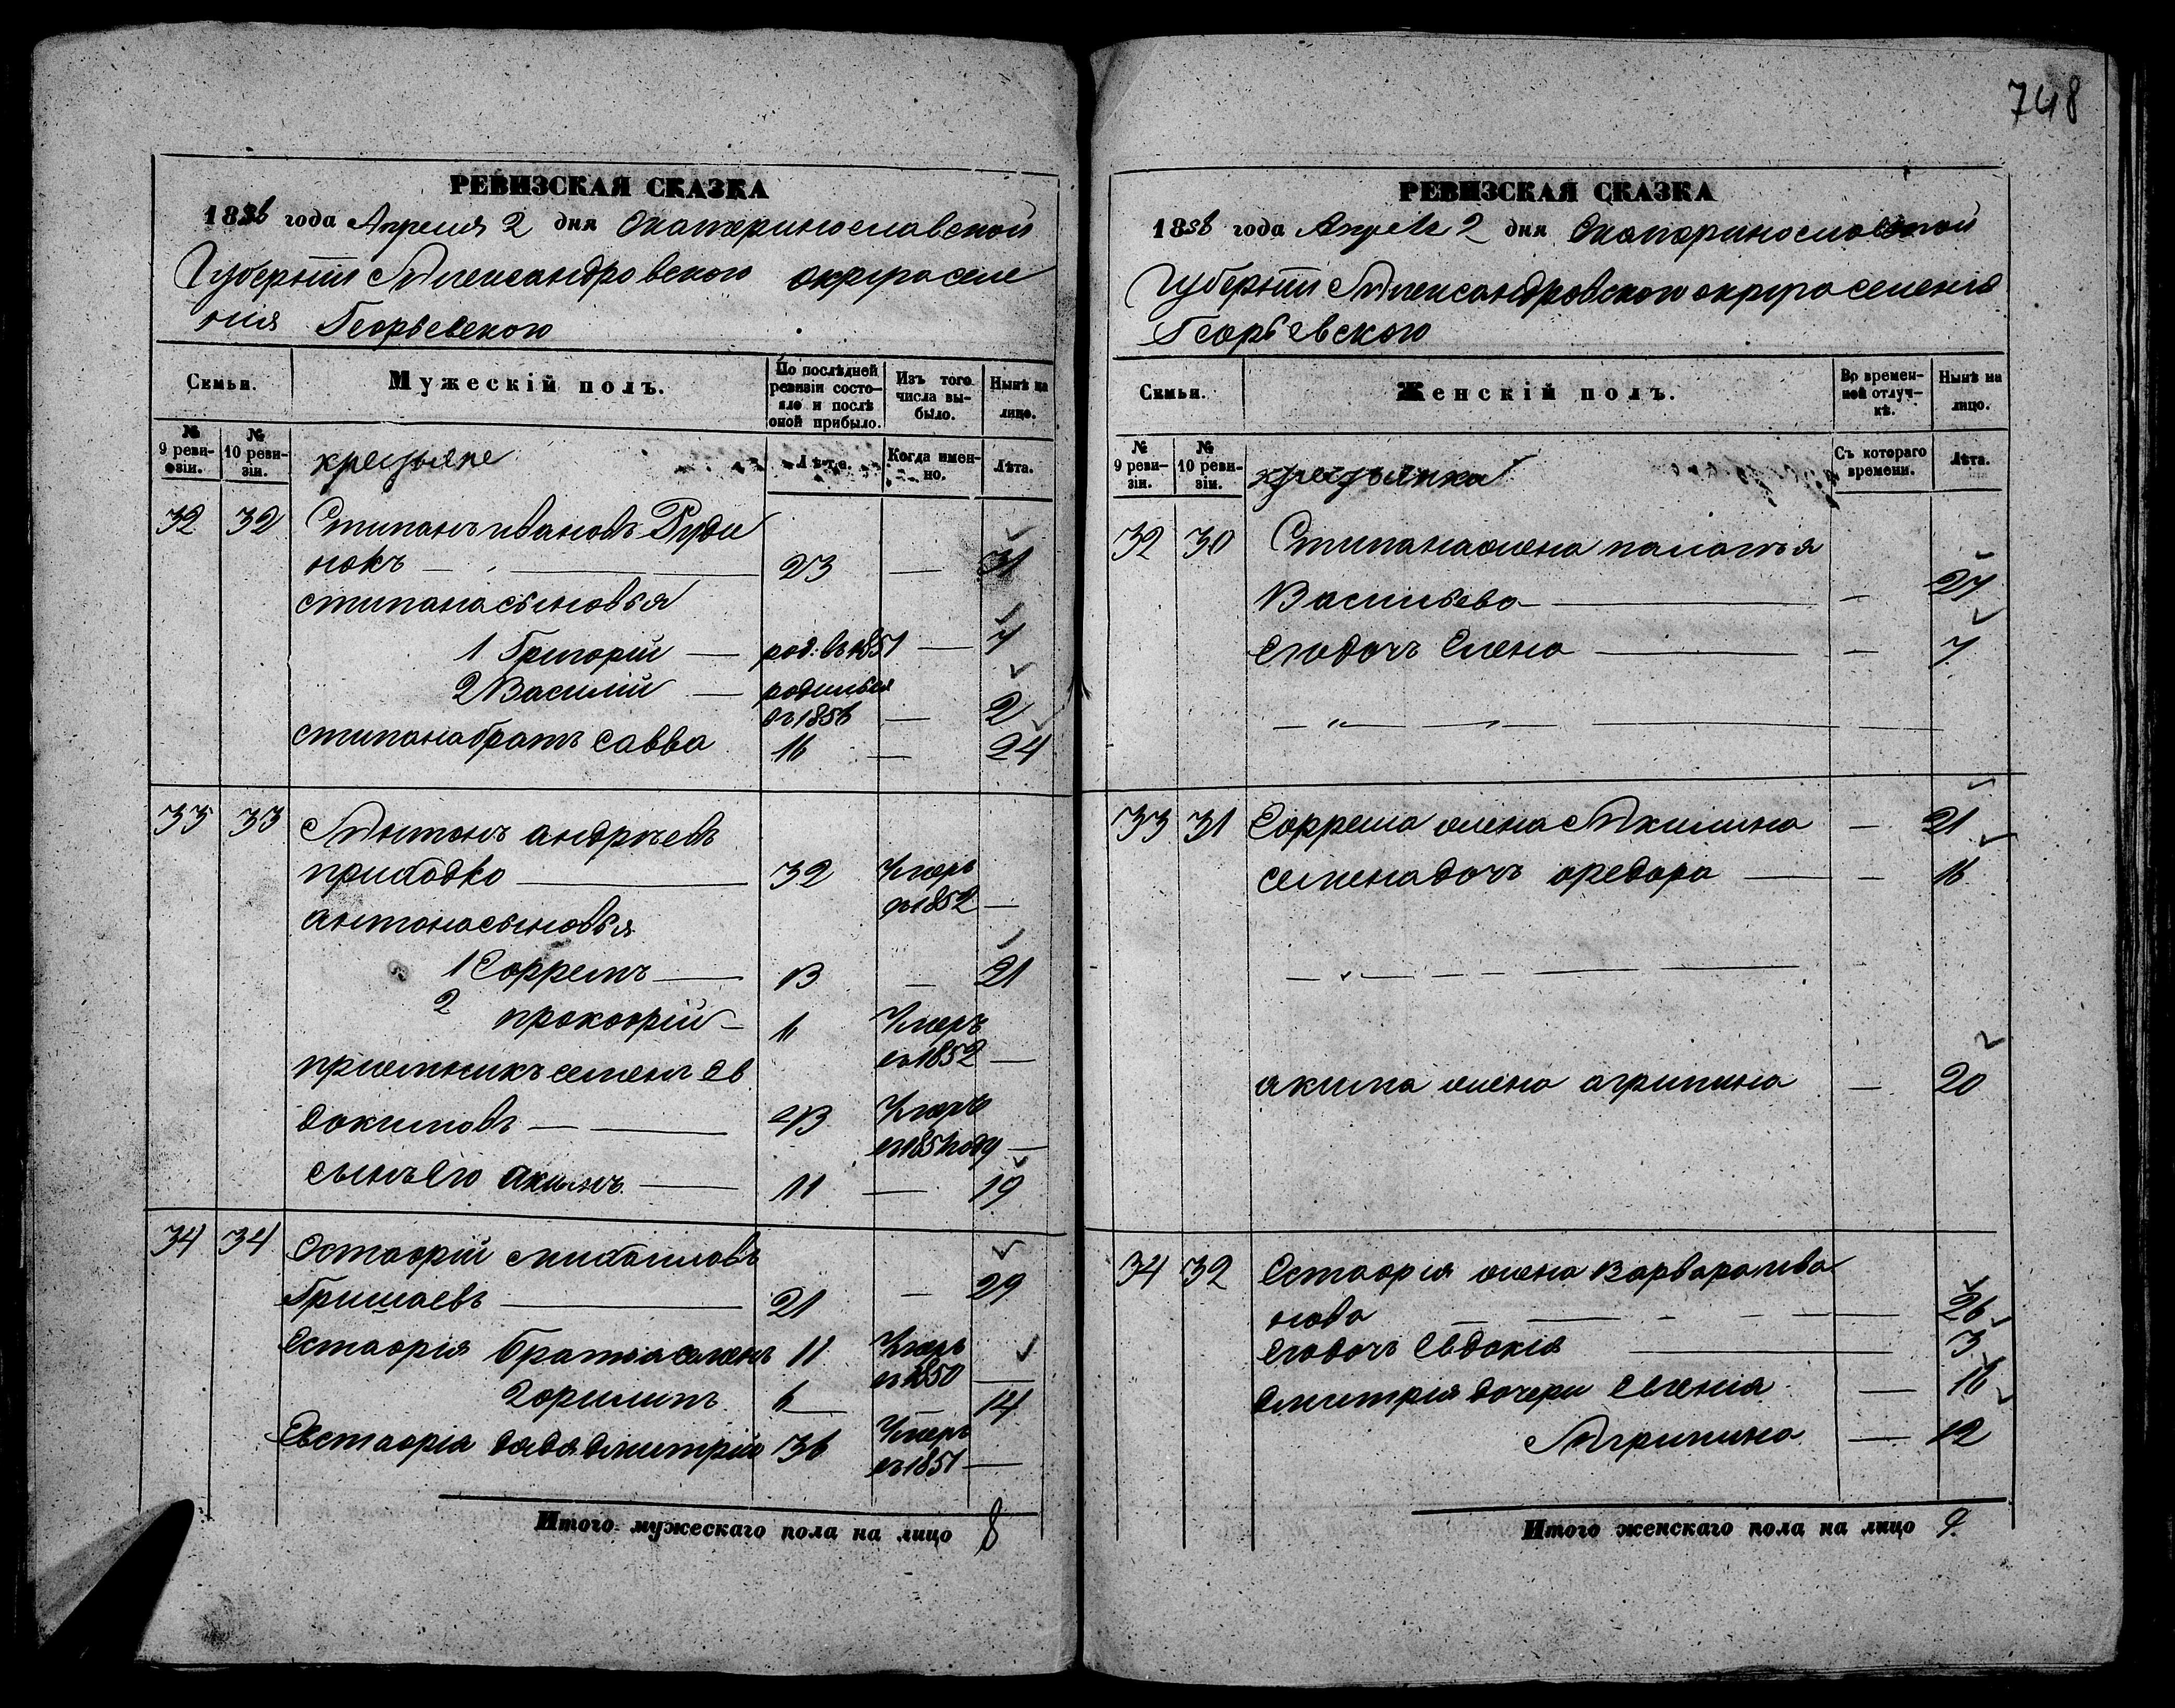 РЕВИЗСКАЯ СКАЗКА
1858 года Апреля 2 дня Екатеринославской
Губернии Александровского округа селе
ния Георгіевского
Семьи. Мужескій полъ. По послѣдней ревизіи состояло и послѣ оной прибыло. Изъ того числа выбыло. Нынѣ на лицо.
№ 9 ревизіи. № 10 ревизіи. крестьяне Лѣта. Когда именно. Лѣта.
32 32 Степанъ ивановъ Руди
нокъ — 23 — 31
степана сыновья
1 Григорій — род: въ 1851 — 7
2 Василій — родился
въ 1856 — 2
степана братъ савва 16 — 24
33 33 Антонъ андреевъ
приходко — 32 Умеръ
въ 1852 —
антона сыновья
1 Ефремъ — 13 — 21
2 прокофій — 11 Умеръ
въ 1852 —
приемникъ семенъ ев
докимовъ — 43 Умеръ
въ 1851 году —
сынъ его акимъ — 11 — 19
34 34 Естафій михаиловъ
Гришаевъ — 21 — 29
Естафія братья семенъ 11 Умеръ
въ 1850 —
2 филипъ 6 — 14
Евстафія дядя дмитрій 36 Умеръ
въ 1851 —
Итого мужескаго пола на лицо 8
748
РЕВИЗСКАЯ СКАЗКА
1858 года Апреля 2 дня Екатеринославской
Губернии Александровского округа селения
Георгіевского
Семьи. Женскій полъ. Во временной отлучкѣ. Нынѣ на лицо.
№ 9 ревизіи. № 10 ревизіи. крестьянка Съ котораго времени. Лѣта.
32 30 Степана жена палагея
Васильева — — 27
Его дочь Елена — — 7
33 31 Ефрема жена Акилина — 21
семена дочь федора — — 16
акима жена агрипина — 20
34 32 Естафія жена варвара ива
нова — 26
Его дочь Евдокія — 3
дмитрія дочери Евгенія — 16
Агрипина — 12
Итого женскаго пола на лицо 9